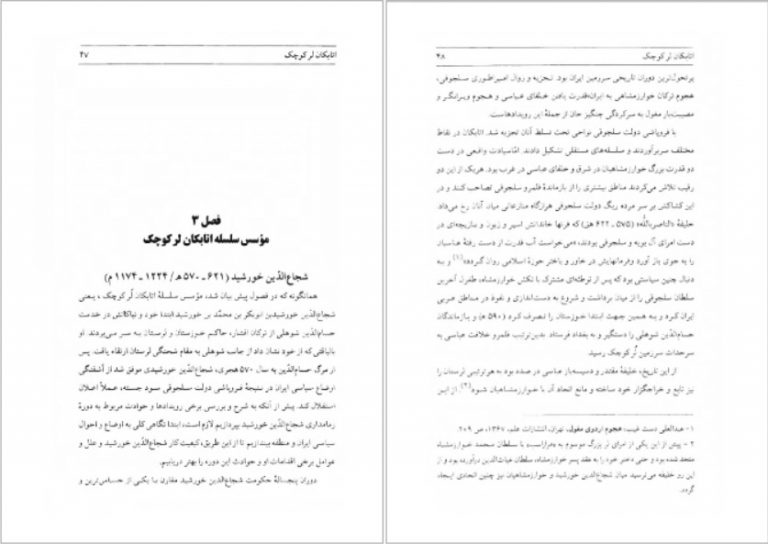 اتابکان لر کوچک ۴۷
فصل ۳
مؤسس سلسله اتابکان لر کوچک
شجاع‌الدّین خورشید (۶۲۱ ـ ۵۷۰ ه‍ / ۱۲۲۴ ـ ۱۱۷۴ م)
همانگونه که در فصول پیش بیان شد، مؤسس سلسلهٔ اتابکان لُر کوچک، یعنی
شجاع‌الدّین خورشیدبن ابوبکر بن محمّد بن خورشید ابتدا خود و نیاکانش در خدمت
حسام‌الدّین شوهلی از ترکان افشار، حاکم خوزستان و لرستان به سر می‌بردند. او
بالیاقتی که از خود نشان داد از جانب شوهلی به مقام شحنگی لرستان ارتقاء یافت. پس
از مرگ حسام‌الدّین به سال ۵۷۰ هجری، شجاع‌الدّین خورشیدی موفق شد از آشفتگی
اوضاع سیاسی ایران در نتیجهٔ فروپاشی دولت سلجوقی سود جسته، عملاً اعلان
استقلال کند. پیش از آنکه به شرح و بررسی برخی رویدادها و حوادث مربوط به دورهٔ
زمامداری شجاع‌الدّین خورشید بپردازیم لازم است، ابتدا نگاهی کلی به اوضاع و احوال
سیاسی ایران و منطقه بیندازیم تا از این طریق، کیفیت کار شجاع‌الدّین خورشید و علل و
عوامل برخی اقدامات او و حوادث این دوره را بهتر دریابیم.
دوران پنجاه‌سالهٔ حکومت شجاع‌الدین خورشید مقارن با یکی از حساس‌ترین و
اتابکان لر کوچک ۴۸
پرتحول‌ترین دوران تاریخی سرزمین ایران بود. تجزیه و زوال امپراطوری سلجوقی،
هجوم ترکان خوارزمشاهی به ایران، قدرت یافتن خلفای عباسی و هجوم ویرانگر و
مصیبت‌بار مغول به سرکردگی چنگیز خان از جملهٔ این رویدادهاست.
با فروپاشی دولت سلجوقی نواحی تحت تسلط آنان تجزیه شد. اتابکان در نقاط
مختلف سربرآوردند و سلسله‌های مستقلی تشکیل دادند. امّاسیادت واقعی در دست
دو قدرت بزرگ خوارزمشاهیان در شرق و خلفای عباسی در غرب بود. هریک از این دو
رقیب تلاش می‌کردند مناطق بیشتری را از بازماندهٔ قلمرو سلجوقی تصاحب کنند و در
این کشاکش بر سر مرده ریگ دولت سلجوقی هرازگاه منازعاتی میان آنان رخ می‌داد.
خلیفهٔ «الناصرباللّه» (۵۷۵ ـ ۶۲۲ هق) که قرنها خاندانش اسیر و زبون و بازیچه‌ای در
دست امرای آل بویه و سلجوقی بودند، «می‌خواست آب قدرت از دست رفتهٔ عباسیان
را به جوی باز آورد وفرمانهایش در خاور و باختر حوزهٔ اسلامی روان گردد»(۱) و به
دنبال چنین سیاستی بود که پس از توطئه‌ای مشترک با تکش خوارزمشاه، طغرل آخرین
سلطان سلجوقی را از میان برداشت و شروع به دست‌اندازی و نفوذ در مناطق غربی
ایران کرد و به همین جهت ابتدا خوزستان را تصرف کرد (۵۹۰ ه‍) و بازماندگان
حسام‌الدّین شوهلی را دستگیر و به بغداد فرستاد. بدین‌ترتیب قلمرو خلافت عباسی به
سرحدات سرزمین لُر کوچک رسید.
از این تاریخ، خلیفهٔ مقتدر و دسیسه‌باز عباسی در صدد بود به هر ترتیبی لرستان را
نیز تابع و خراجگزار خود ساخته و مانع اتحاد آن با خوارزمشاهیان شود(۲). از این
۱ - عبدالعلی دست غیب، هجوم اردوی مغول، تهران، انتشارات علم، ۱۳۶۷، ص ۲۰۹.
۲ - پیش از این یکی از امرای لر بزرگ موسوم به «هزاراسب» با سلطان محمد خوارزمشاه
متحد شده بود و حتی دختر خود را به عقد پسر خوارزمشاه، سلطان غیاث‌الدین درآورده بود و از
این رو خلیفه می‌ترسید میان شجاع‌الدین خورشید و خوارزمشاهیان نیز چنین اتحادی ایجاد
گردد.